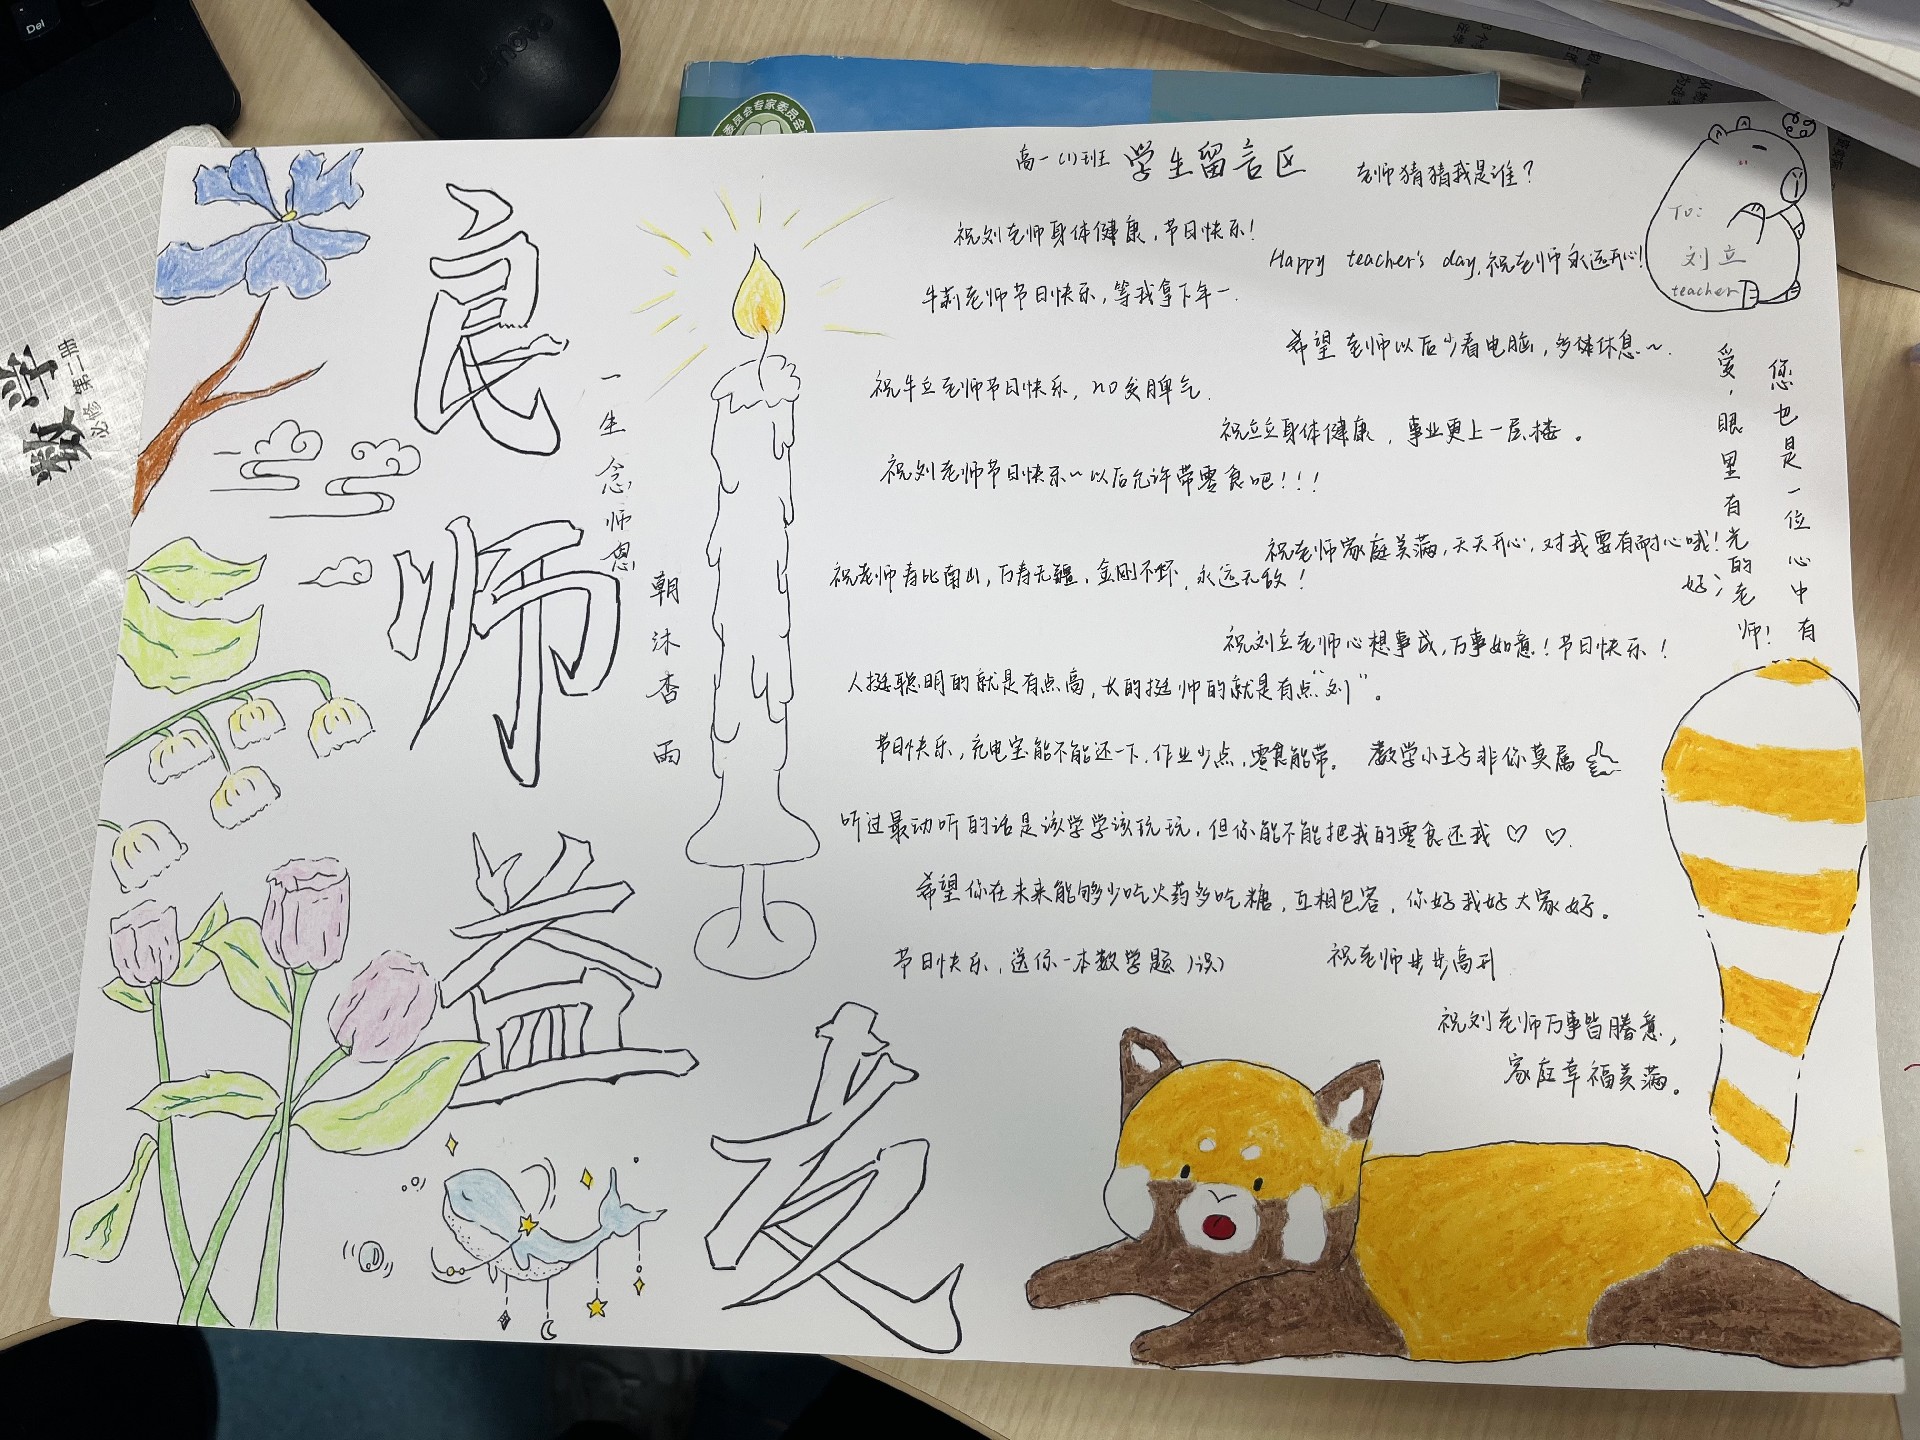 Del
lenovo
委员会专家委员会
数学
必修 第二册
良师益友
一生念师恩
朝沐杏雨
高一(1)班 学生留言区
老师猜猜我是谁?
To:
刘立
teacher
祝刘老师身体健康,节日快乐!
Happy teacher's day,祝老师永远开心!
牛莉老师节日快乐,等我拿下年一.
希望老师以后少看电脑,多休息~.
祝牛立老师节日快乐,no发脾气.
祝立立身体健康,事业更上一层楼。
祝刘老师节日快乐~以后允许带零食吧!!!
祝老师家庭美满,天天开心,对我要有耐心哦!
祝老师寿比南山,万寿无疆,金刚不坏,永远无敌!
您也是一位心中有
爱,眼里有光的老师!
好
祝刘立老师心想事成,万事如意!节日快乐!
人挺聪明的就是有点高,长的挺帅的就是有点“刘”。
节日快乐,充电宝能不能还一下,作业少点,零食能带。
数学小王子非你莫属
听过最动听的话是该学学该玩玩,但你能不能把我的零食还我♡ ♡.
希望你在未来能够少吃火药多吃糖,互相包容,你好我好大家好。
节日快乐,送你一本数学题(误)
祝老师步步高升
祝刘老师万事皆胜意,
家庭幸福美满。